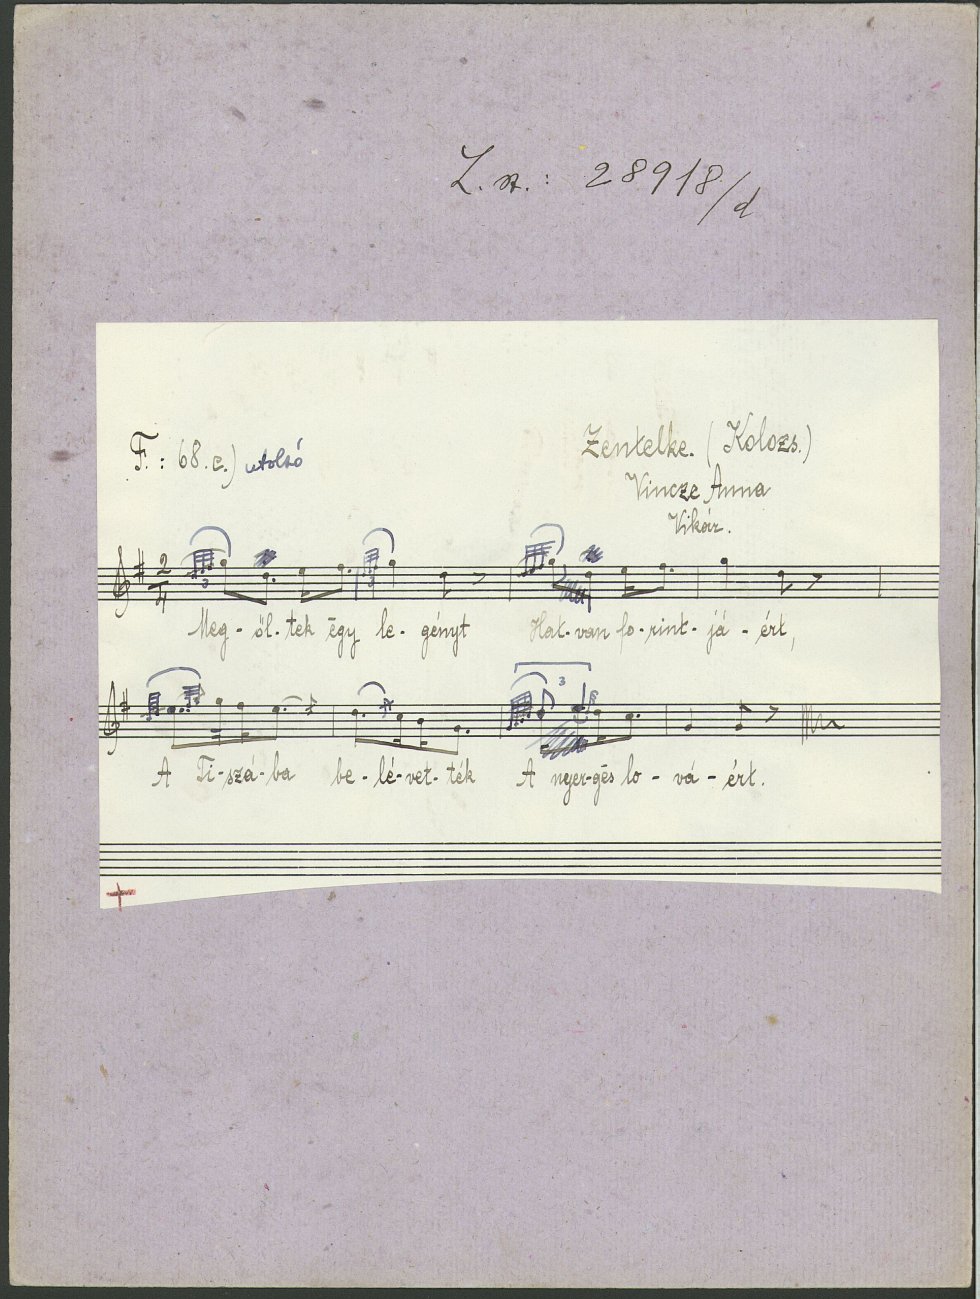 L. sz.: 28918/d
F.: 68.c.) utolsó
Zentelke. (Kolozs.)
Vincze Anna
Vikár.
2
4
3
Meg - öl - tek ëgy le - gényt Hat - van fo - rint - já - ért,
3
A Ti - szá - ba be - lé - vet - ték A nyer - gës lo - vá - ért.